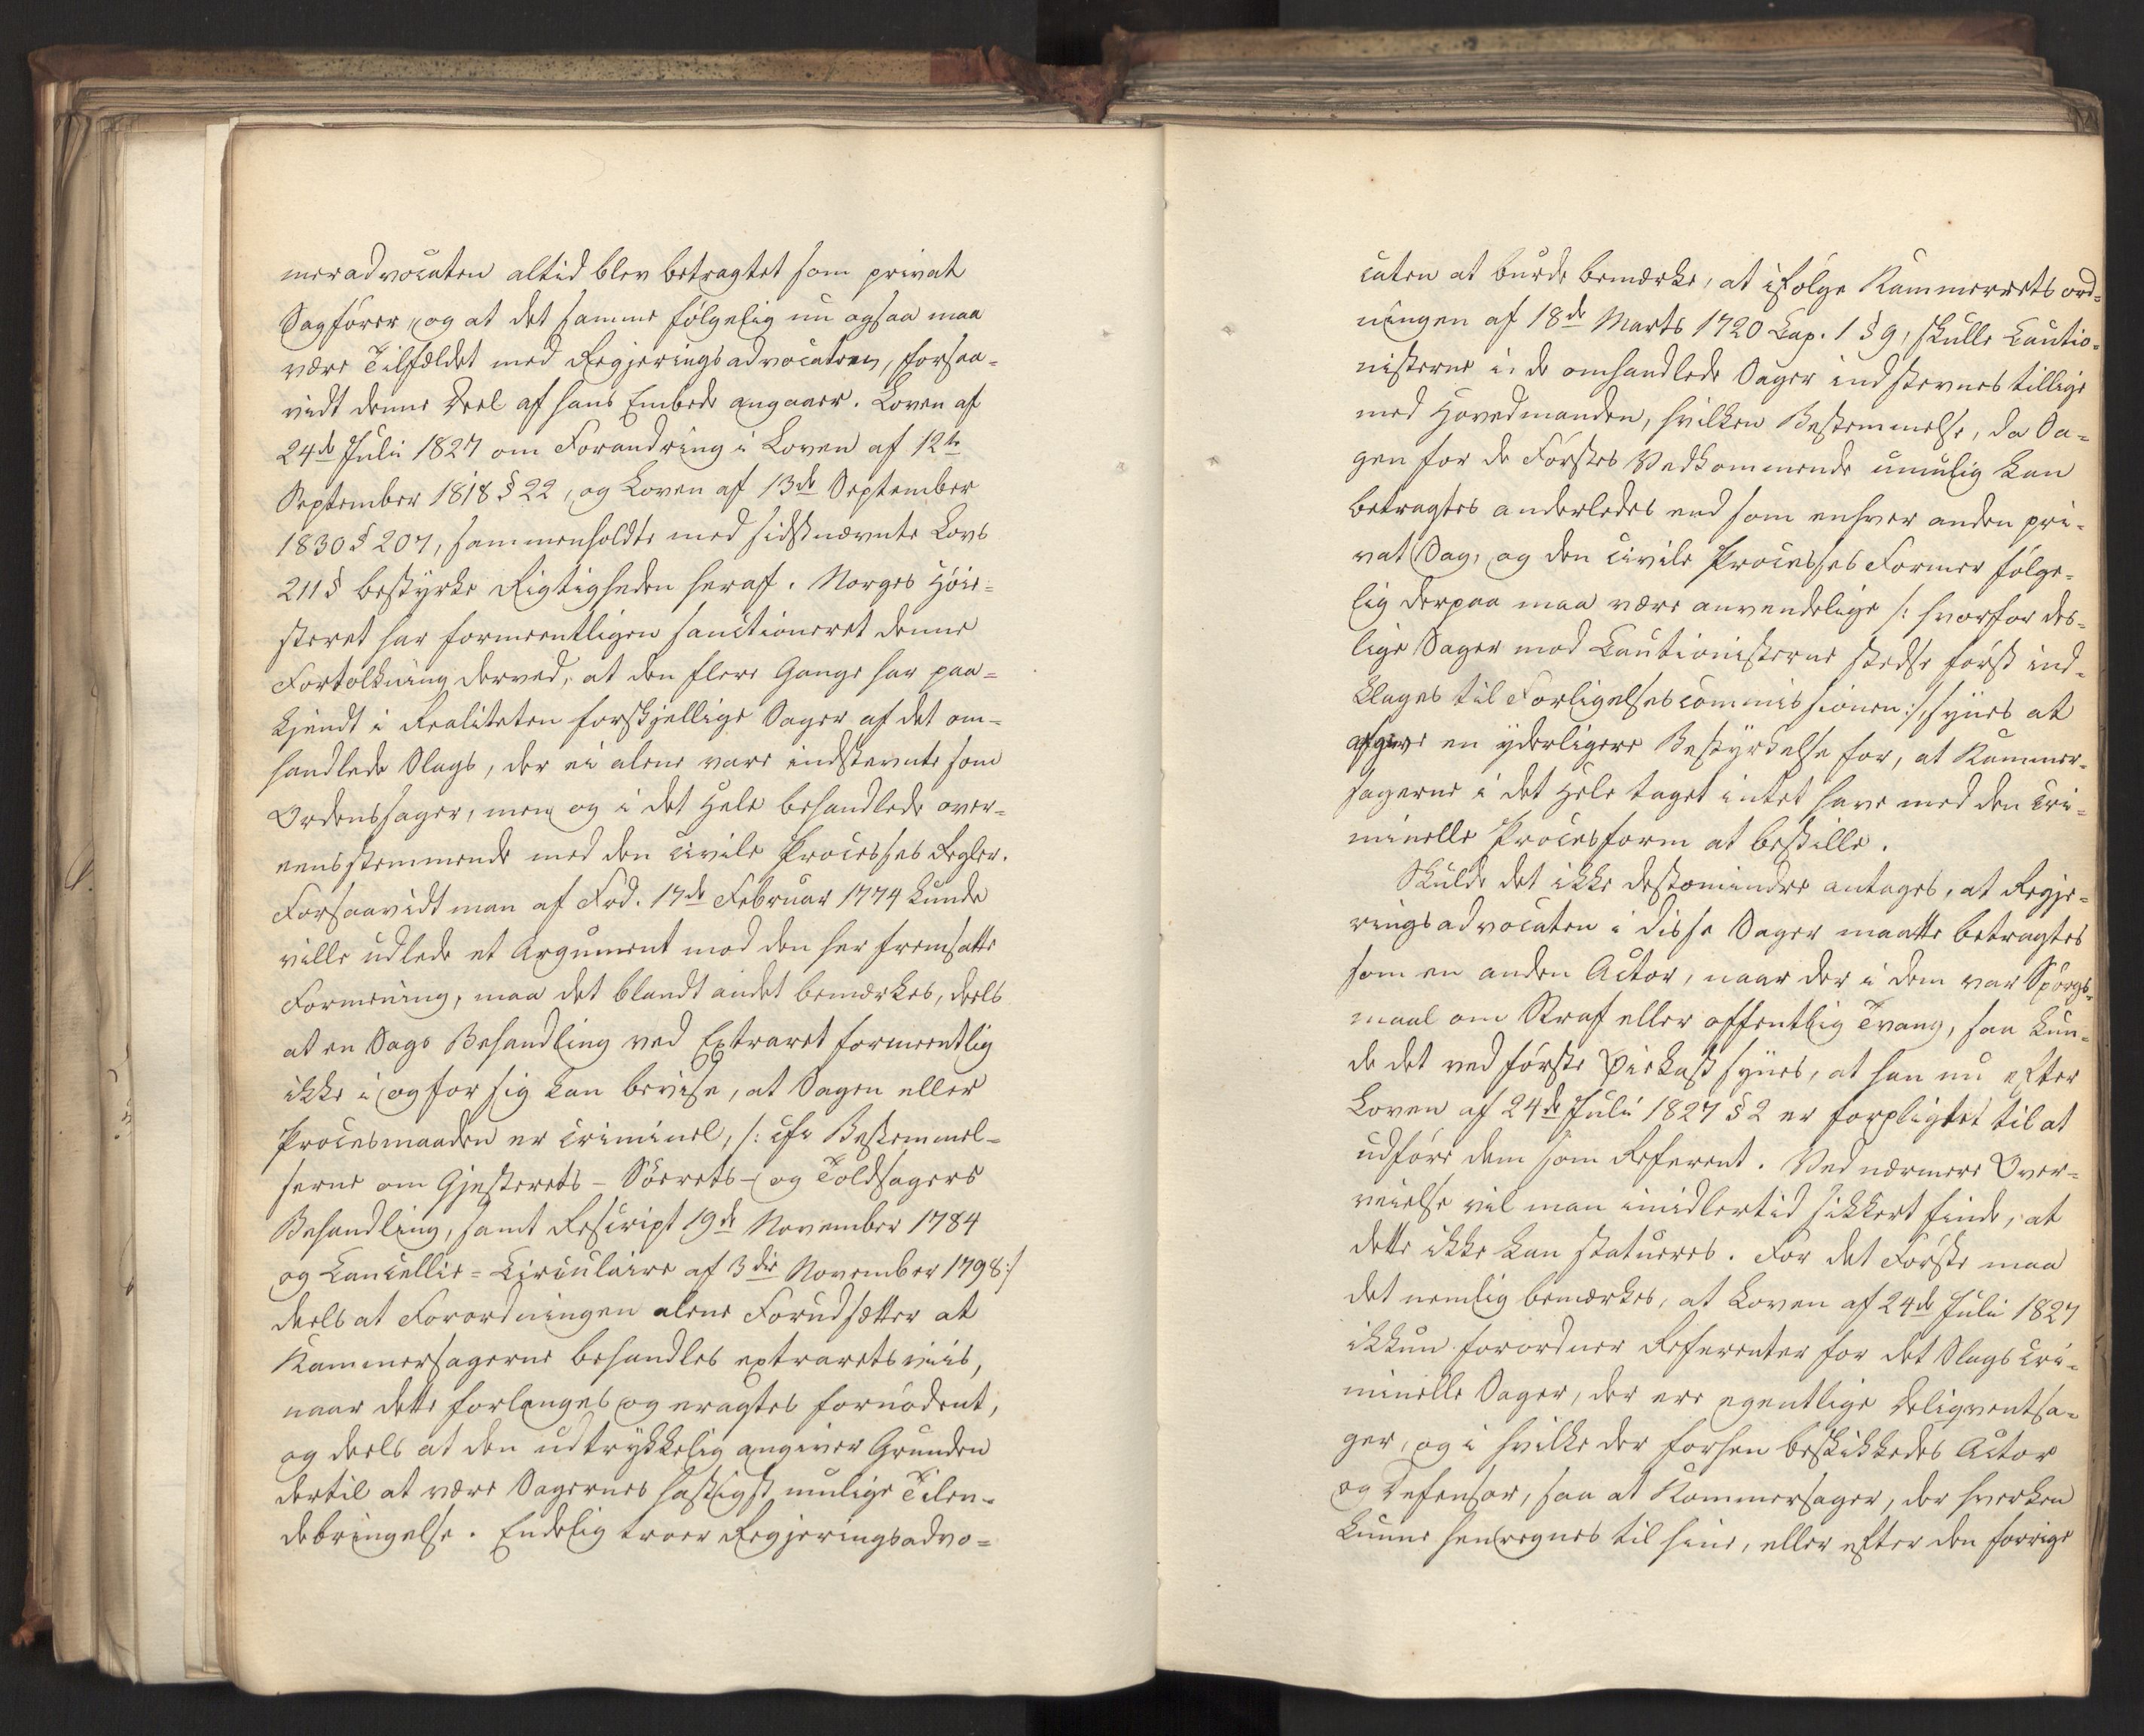 meradvocaten altid blev betragtet som privat
Sagfører, og at det samme følgelig nu ogsaa maa
være Tilfældet med Regjeringsadvocaten, forsaa-
vidt denne Deel af hans Embede angaaer. Loven af
24de Juli 1827 om Forandring i Loven af 12te
September 1818 § 22, og Loven af 13de September
1830 § 207, sammenholdte med sidstnævnte Lovs
211 § bestyrke Rigtigheden heraf. Norges Høie-
steret har formeentligen sanctioneret denne
Fortolkning derved, at den flere Gange har paa-
kjendt i Realiteten forskjellige Sager af det om-
handlede Slags, der ei alene vare indstevnte som
Ordenssager, men og i det Hele behandlede over-
eensstemmende med den civile Processes Regler.
Forsaavidt man af Frd. 17de Februar 1774 kunde
ville udlede et Argument mod den her fremsatte
Formening, maa det blandt andet bemærkes, deels
at en Sags Behandling ved Extraret formeentlig
ikke i og for sig kan bevise, at Sagen eller
Procesmaaden er criminel, /: cfr Bestemmel-
serne om Gjesterets- Søerets- og Toldsagers
Behandling, samt Rescript 19de November 1784
og Cancellie-Circulaire af 3die November 1798 :/
deels at Forordningen alene Forudsætter at
Kammersagerne behandles extraretsviis,
naar dette forlanges og eragtes fornødent,
og deels at den udtrykkelig angiver Grunden
dertil at være Sagernes hastigst mulige Tilen-
debringelse. Endelig troer Regjeringsadvo-
caten at burde bemærke, at ifølge Kammerretsord-
ningen af 18de Marts 1720 Cap. 1 § 9, skulle Cautio-
nisterne i de omhandlede Sager indstevnes tillige
med Hovedmanden, hvilken Bestemmelse, da Sa-
gen for de Førstes Vedkommende umulig kan
betragtes anderledes end som enhver anden pri-
vat Sag, og den civile Processes Former følge-
lig derpaa maa være anvendelige /: hvorfor des-
lige Sager mod Cautionisterne stedse først ind-
klages til Forligelsescommissionen :/, synes at
afgive en yderligere Bestyrkelse for, at Kammer-
sagerne i det Hele taget intet have med den cri-
minelle Procesform at bestille.
Skulde det ikke destomindre antages, at Regje-
ringsadvocaten i disse Sager maatte betragtes
som en anden Actor, naar der i dem var Spørgs-
maal om Straf eller offentlig Tvang, saa kun-
de det ved første Øiekast synes, at han nu efter
Loven af 24de Juli 1827 § 2 er forpligtet til at
udføre dem som Referent. Ved nærmere Over-
veielse vil man imidlertid sikkert finde, at
dette ikke kan statueres. For det Første maa
det nemlig bemærkes, at Loven af 24de Juli 1827
ikkun forordner Referenter for det Slags cri-
minelle Sager, der ere egentlige Deliqventsa-
ger, og i hvilke der forhen beskikkedes Actor
og Defensor, saa at Kammersager, der hverken
kunne henregnes til hine, eller efter den forrige